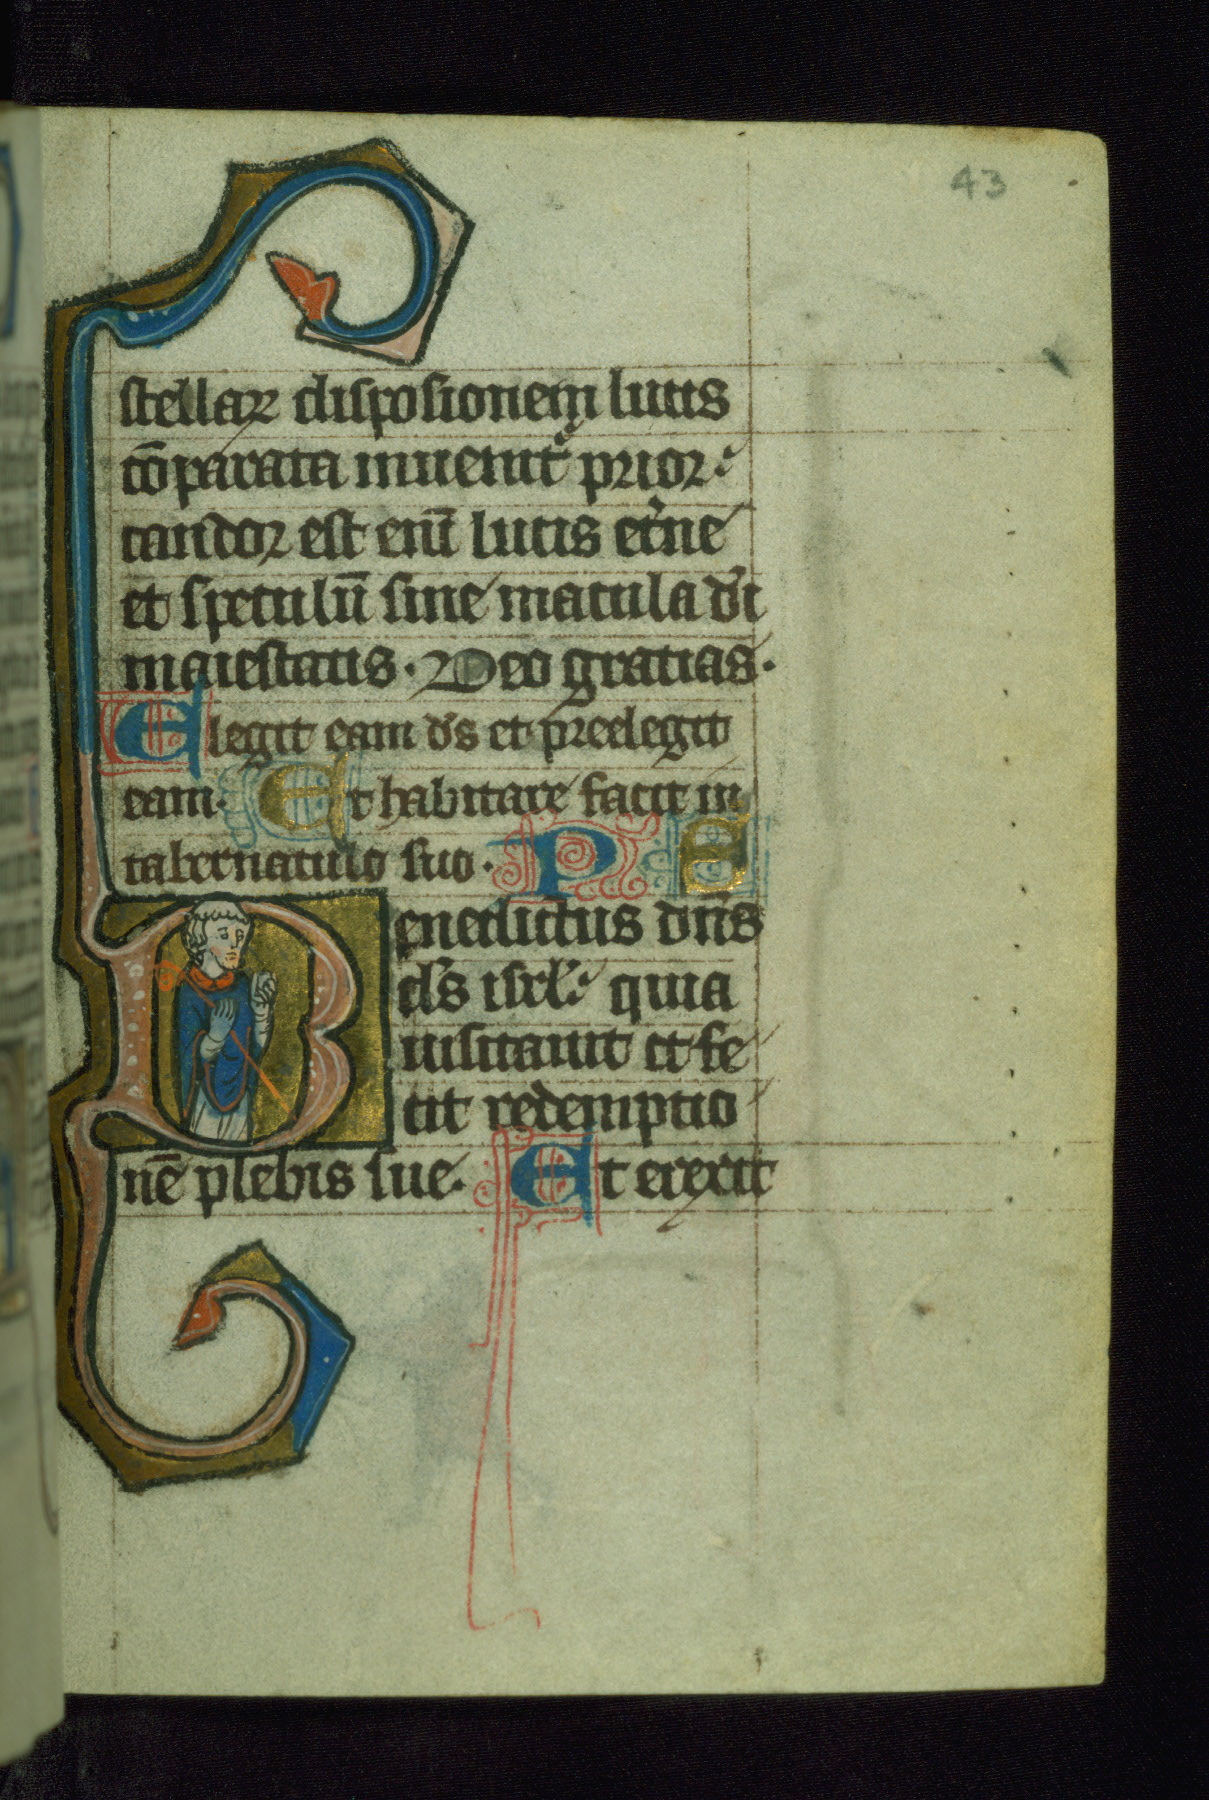 43
stellaꝝ disposicionem lucis
cōparata inuenit᷑ prior:
candor est eni᷑ lucis et᷑ne
et speculū sine macula dī
maiestatis. Deo gratias.
Elegit eam ds et preelegit
eam. Et habitare facit in
tabernaculo suo. P B
enedictus dn̄s
ds isrl: quia
uisitauit et fe
cit redemptio
nē plebis sue. Et erexit